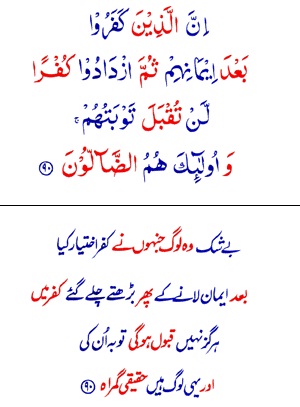 اِنَّ الَّذِیْنَ کَفَرُوْا
بَعْدَ اِیْمَانِہِمْ ثُمَّ ازْدَادُوْا کُفْرًا
لَّنْ تُقْبَلَ تَوْبَتُھُمْ ۚ
وَ اُولٰٓئِکَ ھُمُ الضَّآلُّوْنَ ﴿۹۰﴾
بے شک وہ لوگ جنہوں نے کفر اختیار کیا
بعد ایمان لانے کے پھر بڑھتے چلے گئے کفر میں
ہرگز نہیں قبول ہوگی توبہ اُن کی
اور یہی لوگ ہیں حقیقی گمراہ ﴿۹۰﴾